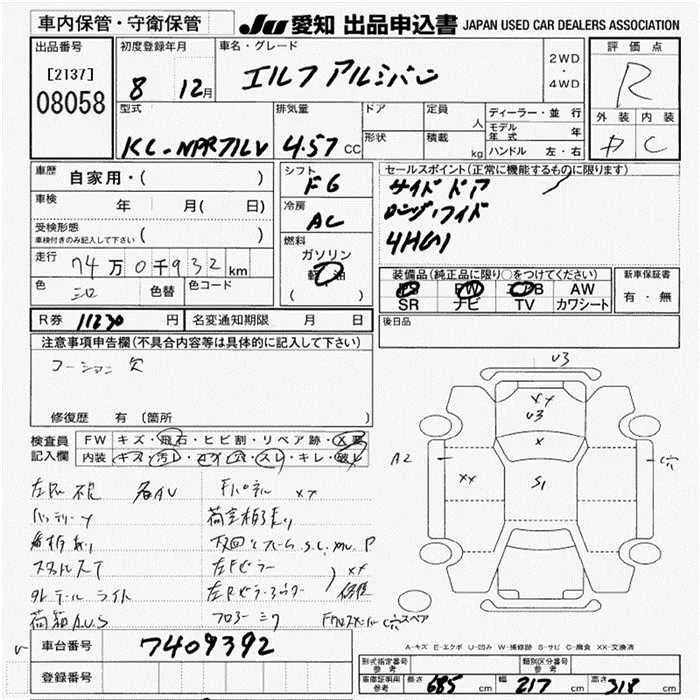 車内保管・守衛保管
JU 愛知 出品申込書 JAPAN USED CAR DEALERS ASSOCIATION
出品番号
[2137]
08058
初度登録年月
8 12月
車名・グレード
エルフ アルミバン
2WD
・
4WD
評価点
R
外装 内装
D C
型式
KC-NPR71LV
排気量
4.57 CC
ドア
形状
定員 人
積載 kg
ディーラー・並行
モデル年式 年
ハンドル 左・右
車歴
自家用・( )
車検 年 月( 日)
受検形態
車検付きのみ記入して下さい ( )
走行
74万0千932km
色 シロ 色替 色コード
シフト
F6
冷房
AC
燃料
ガソリン
軽油
( )
セールスポイント(正常に機能するものに限ります)
サイドドア
ロング・ワイド
4HG1
装備品(純正品に限り○をつけてください)
PS PW エアB AW
SR ナビ TV カワシート
新車保証書
有・無
R券 11230 円 名変通知期限 月 日
後日品
注意事項申告欄(不具合内容等は具体的に記入して下さい)
コーション 欠
修復歴 有 (箇所
検査員記入欄
FW キズ・飛石・ヒビ割・リペア跡・X要
内装 キズ・汚レ・コゲ・穴・スレ・キレ・破レ
U3
XX
U3
X
A2
XX
S1
C穴
左PW 不良 各AU
バッテリー
Fパネル XX
左Fピラー
テールライト
フロアー
荷箱 A.U.S
C穴
スペア
A-キズ E-エクボ U-凹み W-補修跡 S-サビ C-腐食 XX-交換済
車台番号 7409392
登録番号
型式指定番号 参考
類別区分番号 参考
車庫証明用 参考 長さ 685 cm 幅 217 cm 高さ 318 cm